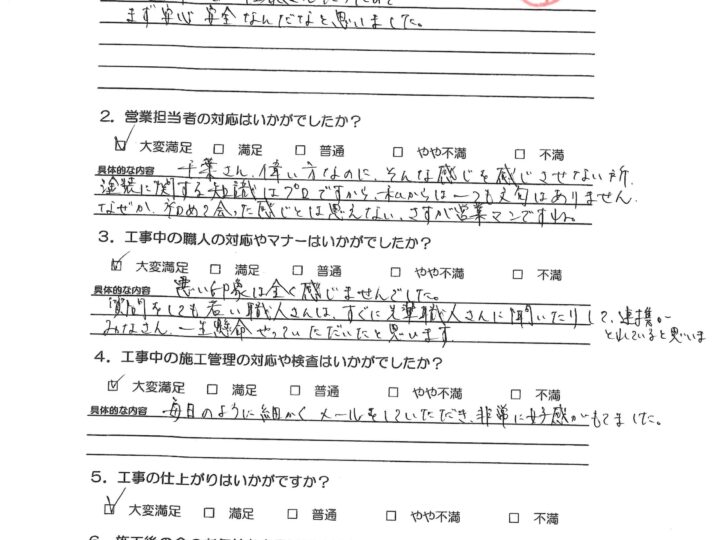 まず安心安全なんだなと思いました。
2．営業担当者の対応はいかがでしたか？
☑ 大変満足 □ 満足 □ 普通 □ やや不満 □ 不満
具体的な内容 千葉さん、偉い方なのに、そんな感じを感じさせない所、
塗装に関する知識はプロですから、私からは一つも文句はありません。
なぜか、初めて会った感じとは思えない、さすが営業マンですね。
3．工事中の職人の対応やマナーはいかがでしたか？
☑ 大変満足 □ 満足 □ 普通 □ やや不満 □ 不満
具体的な内容 悪い印象は全く感じませんでした。
質問をしても若い職人さんは、すぐに先輩職人さんに聞いたりして、連携が
とれていると思いま
みなさん、一生懸命やっていただいたと思います
4．工事中の施工管理の対応や検査はいかがでしたか？
☑ 大変満足 □ 満足 □ 普通 □ やや不満 □ 不満
具体的な内容 毎日のように細かくメールをしていただき、非常に好感がもてました。
5．工事の仕上がりはいかがですか？
☑ 大変満足 □ 満足 □ 普通 □ やや不満 □ 不満